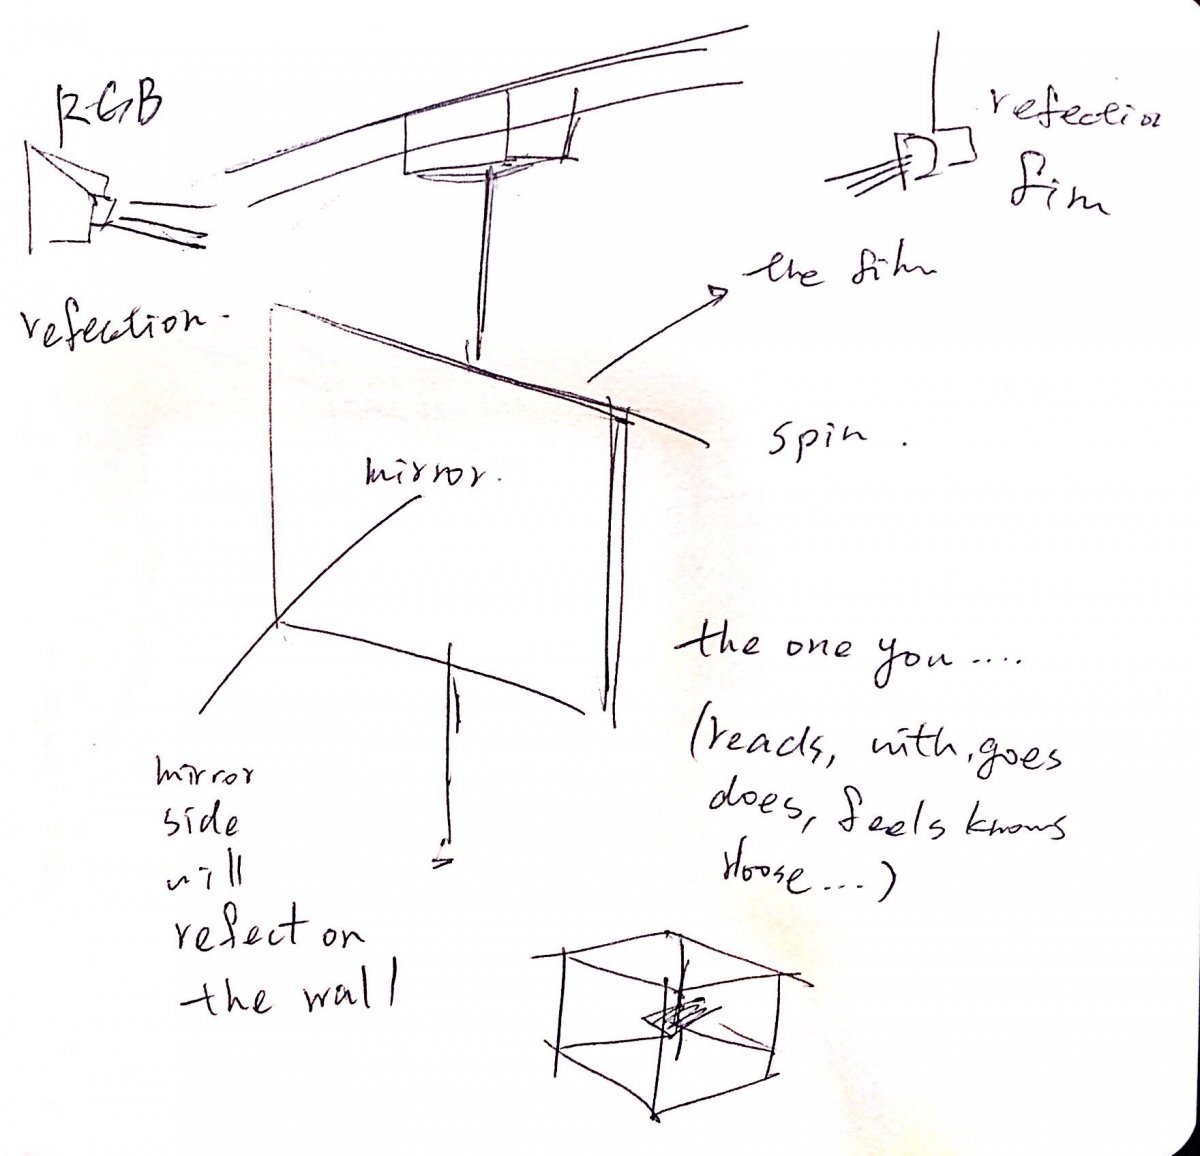 RGB
refection
fim
the film
refection.
spin.
mirror.
the one you....
(reads, with, goes
does, feels knows
....)
mirror
side
will
refect on
the wall